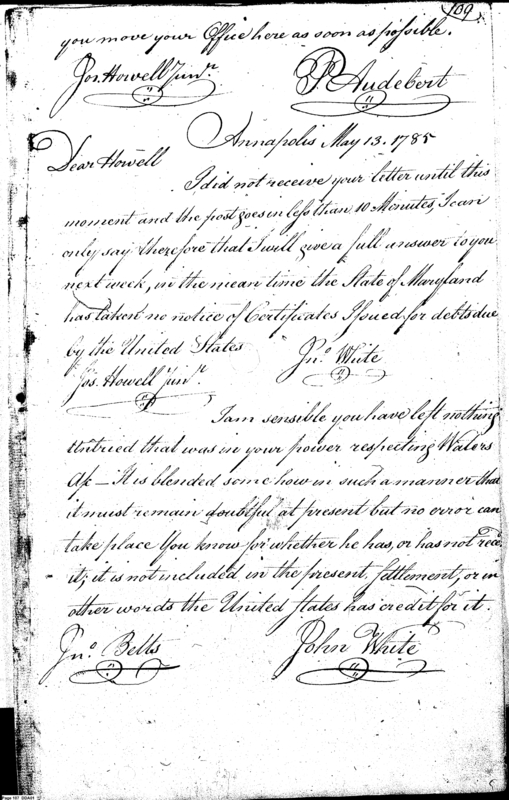 109
you move your Office here as soon as possible.
Jos. Howell Junr. P. Audebert
Annapolis May 13. 1785
Dear Howell
I did not receive your letter until this
moment and the post goes in less than 10 Minutes, I can
only say therefore that I will give a full answer to you
next week, in the mean time the State of Maryland
has taken no notice of Certificates Issued for debts due
by the United States Jno. White
Jos. Howell Junr.
I am sensible you have left nothing
Untried that was in your power respecting Waters
It is blended some how in such a manner that
it must remain doubtful at present but no error can
take place You know for whether he has, or has not recd.
it; it is not included in the present, settlement, or in
other words the United States has credit for it.
Jno. Betts John White
Page 107